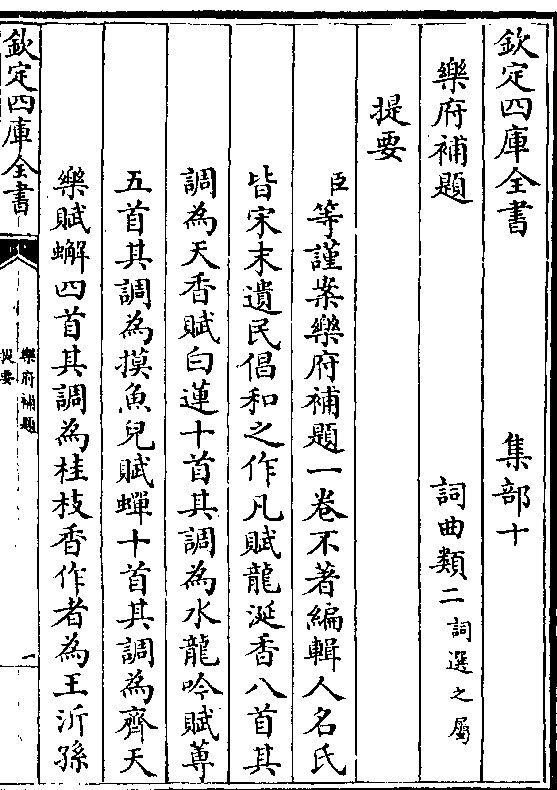 欽定四庫全書　集部十
樂府補題　詞曲類二詞選之屬
提要
臣等謹案樂府補題一卷不著編輯人名氏
皆宋末遺民倡和之作凡賦龍涎香八首其
調為天香賦白蓮十首其調為水龍吟賦蓴
五首其調為摸魚兒賦蟬十首其調為齊天
樂賦蠏四首其調為桂枝香作者為王沂孫
欽定四庫全書
樂府補題
提要
一